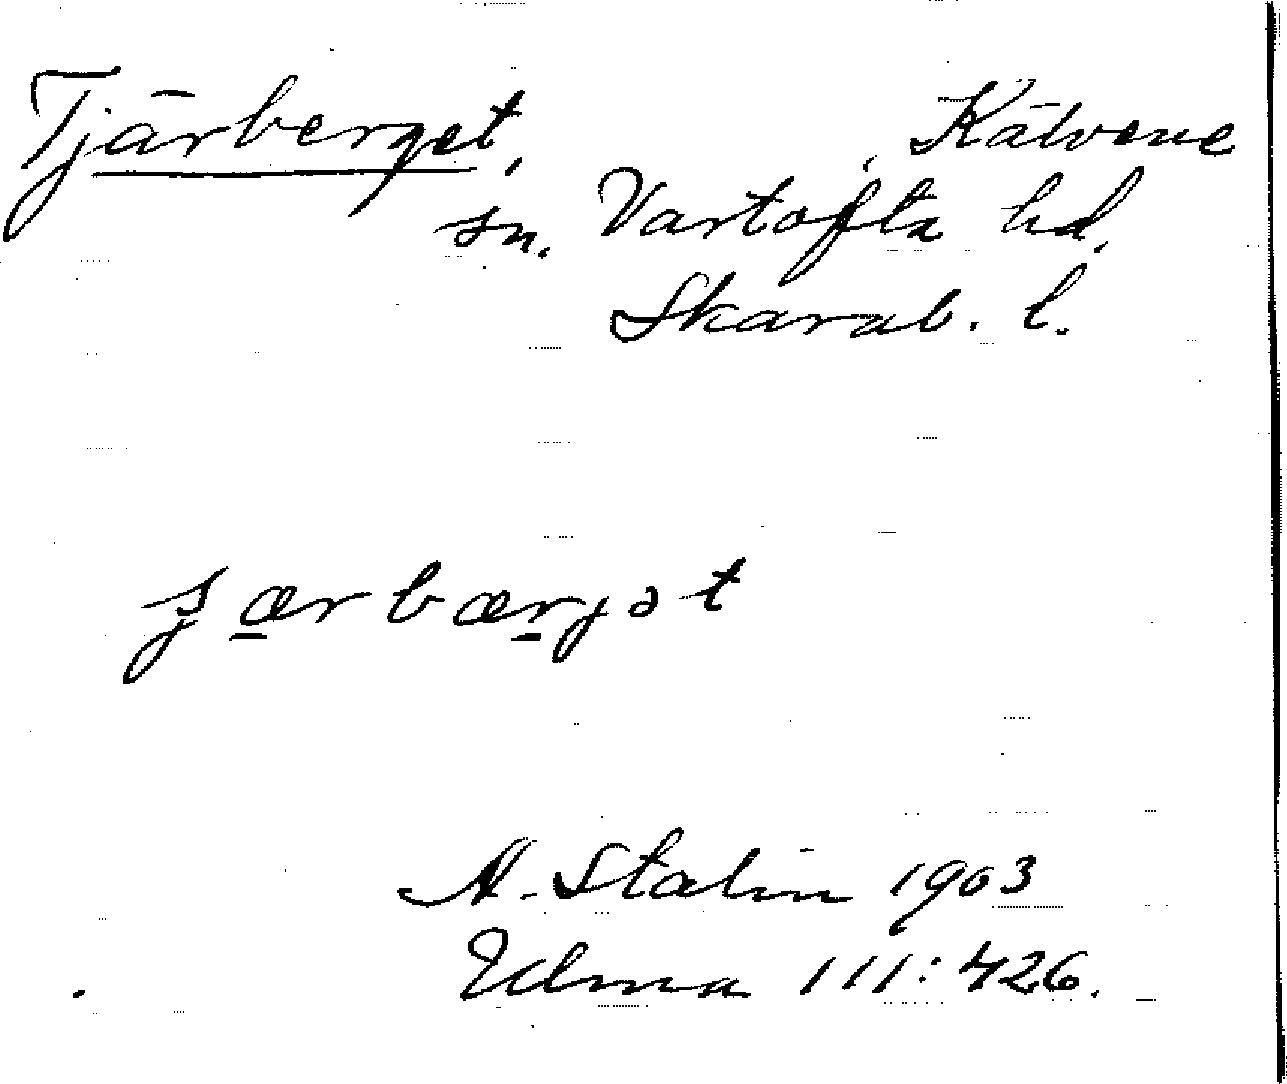 Tjärberget, Kälvene
sn. Vartofta hd.
Skarab. l.
ʂærbærjət
A. Stalin 1903
Ulma 111:426.